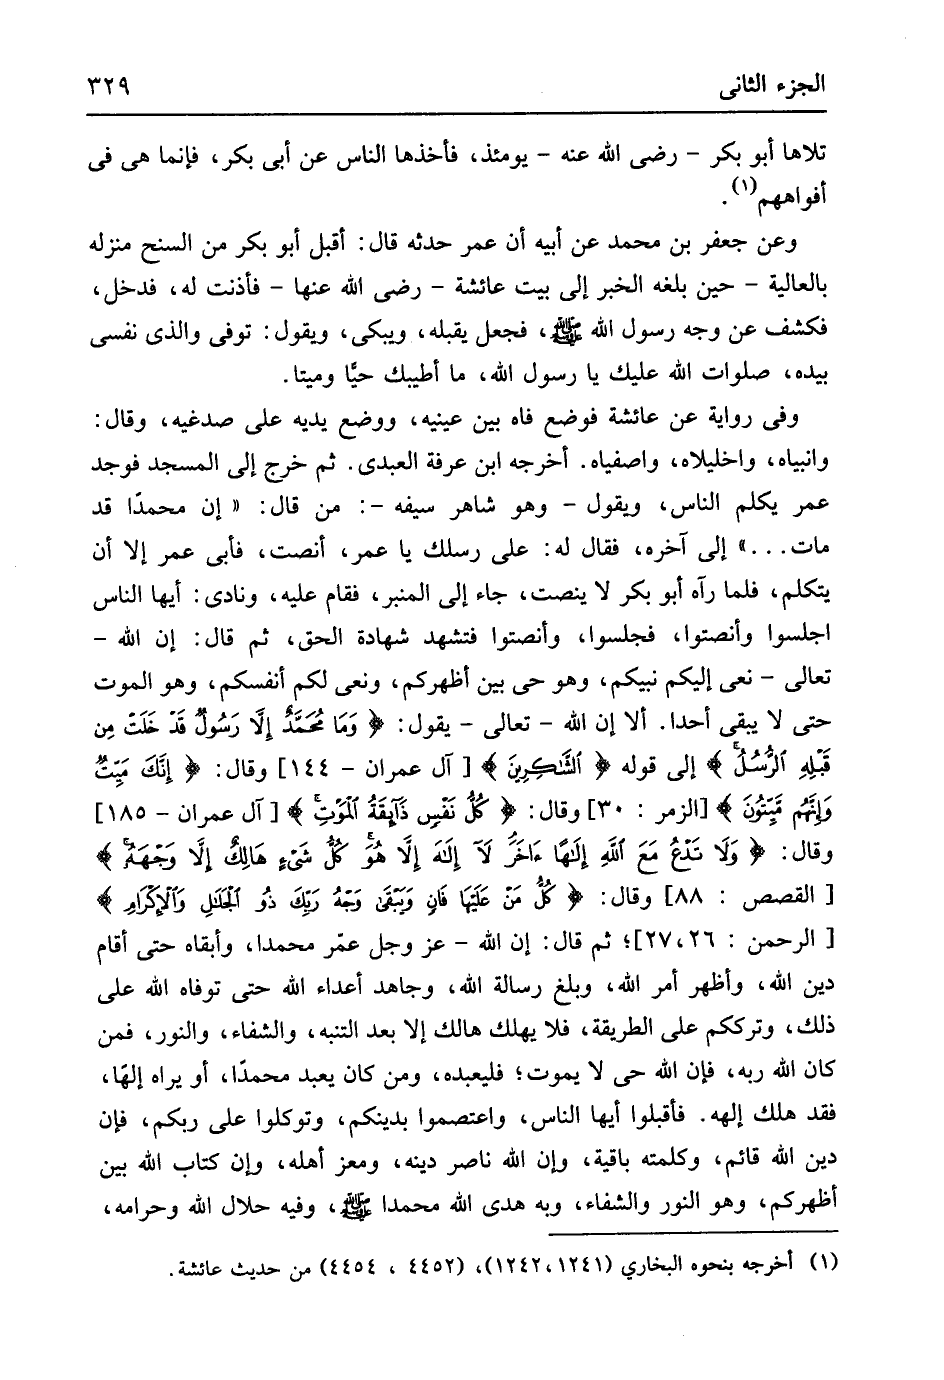 الجزء الثانى ٣٢٩
تلاها أبو بكر - رضى الله عنه - يومئذ، فأخذها الناس عن أبى بكر، فإنما هى فى
أفواههم(١).
وعن جعفر بن محمد عن أبيه أن عمر حدثه قال: أقبل أبو بكر من السنح منزله
بالعالية - حين بلغه الخبر إلى بيت عائشة - رضى الله عنها - فأذنت له، فدخل،
فكشف عن وجه رسول الله ﷺ، فجعل يقبله، ويبكى، ويقول: توفى والذى نفسى
بيده، صلوات الله عليك يا رسول الله، ما أطيبك حيًّا وميتا.
وفى رواية عن عائشة فوضع فاه بين عينيه، ووضع يديه على صدغيه، وقال:
وانبياه، واخليلاه، واصفياه. أخرجه ابن عرفة العبدى. ثم خرج إلى المسجد فوجد
عمر يكلم الناس، ويقول - وهو شاهر سيفه -: من قال: « إن محمدًا قد
مات...» إلى آخره، فقال له: على رسلك يا عمر، أنصت، فأبى عمر إلا أن
يتكلم، فلما رآه أبو بكر لا ينصت، جاء إلى المنبر، فقام عليه، ونادى: أيها الناس
اجلسوا وأنصتوا، فجلسوا، وأنصتوا فتشهد شهادة الحق، ثم قال: إن الله -
تعالى - نعى إليكم نبيكم، وهو حى بين أظهركم، ونعى لكم أنفسكم، وهو الموت
حتى لا يبقى أحدا. ألا إن الله - تعالى - يقول: ﴿ وَمَا مُحَمَّدٌ إِلَّا رَسُولٌ قَدْ خَلَتْ مِن
قَبْلِهِ ٱلرُّسُلُ ۚ ﴾ إلى قوله ﴿ ٱلشَّٰكِرِينَ ﴾ [ آل عمران - ١٤٤] وقال: ﴿ إِنَّكَ مَيِّتٌ
وَإِنَّهُم مَّيِّتُونَ ﴾ [الزمر : ٣٠] وقال: ﴿ كُلُّ نَفْسٍ ذَآئِقَةُ ٱلْمَوْتِ ۗ ﴾ [ آل عمران - ١٨٥]
وقال: ﴿ وَلَا تَدْعُ مَعَ ٱللَّهِ إِلَٰهًا ءَاخَرَ ۘ لَآ إِلَٰهَ إِلَّا هُوَ ۚ كُلُّ شَىْءٍ هَالِكٌ إِلَّا وَجْهَهُۥ ۚ ﴾
[ القصص : ٨٨] وقال: ﴿ كُلُّ مَنْ عَلَيْهَا فَانٍ وَيَبْقَىٰ وَجْهُ رَبِّكَ ذُو ٱلْجَلَٰلِ وَٱلْإِكْرَامِ ﴾
[ الرحمن : ٢٧،٢٦]؛ ثم قال: إن الله - عز وجل عمّر محمدا، وأبقاه حتى أقام
دين الله، وأظهر أمر الله، وبلغ رسالة الله، وجاهد أعداء الله حتى توفاه الله على
ذلك، وترككم على الطريقة، فلا يهلك هالك إلا بعد التنبه، والشفاء، والنور، فمن
كان الله ربه، فإن الله حى لا يموت؛ فليعبده، ومن كان يعبد محمدًا، أو يراه إلهًا،
فقد هلك إلهه. فأقبلوا أيها الناس، واعتصموا بدينكم، وتوكلوا على ربكم، فإن
دين الله قائم، وكلمته باقية، وإن الله ناصر دينه، ومعز أهله، وإن كتاب الله بين
أظهركم، وهو النور والشفاء، وبه هدى الله محمدا ﷺ، وفيه حلال الله وحرامه،
(١) أخرجه بنحوه البخاري (١٢٤٢،١٢٤١)، (٤٤٥٢ ، ٤٤٥٤) من حديث عائشة.